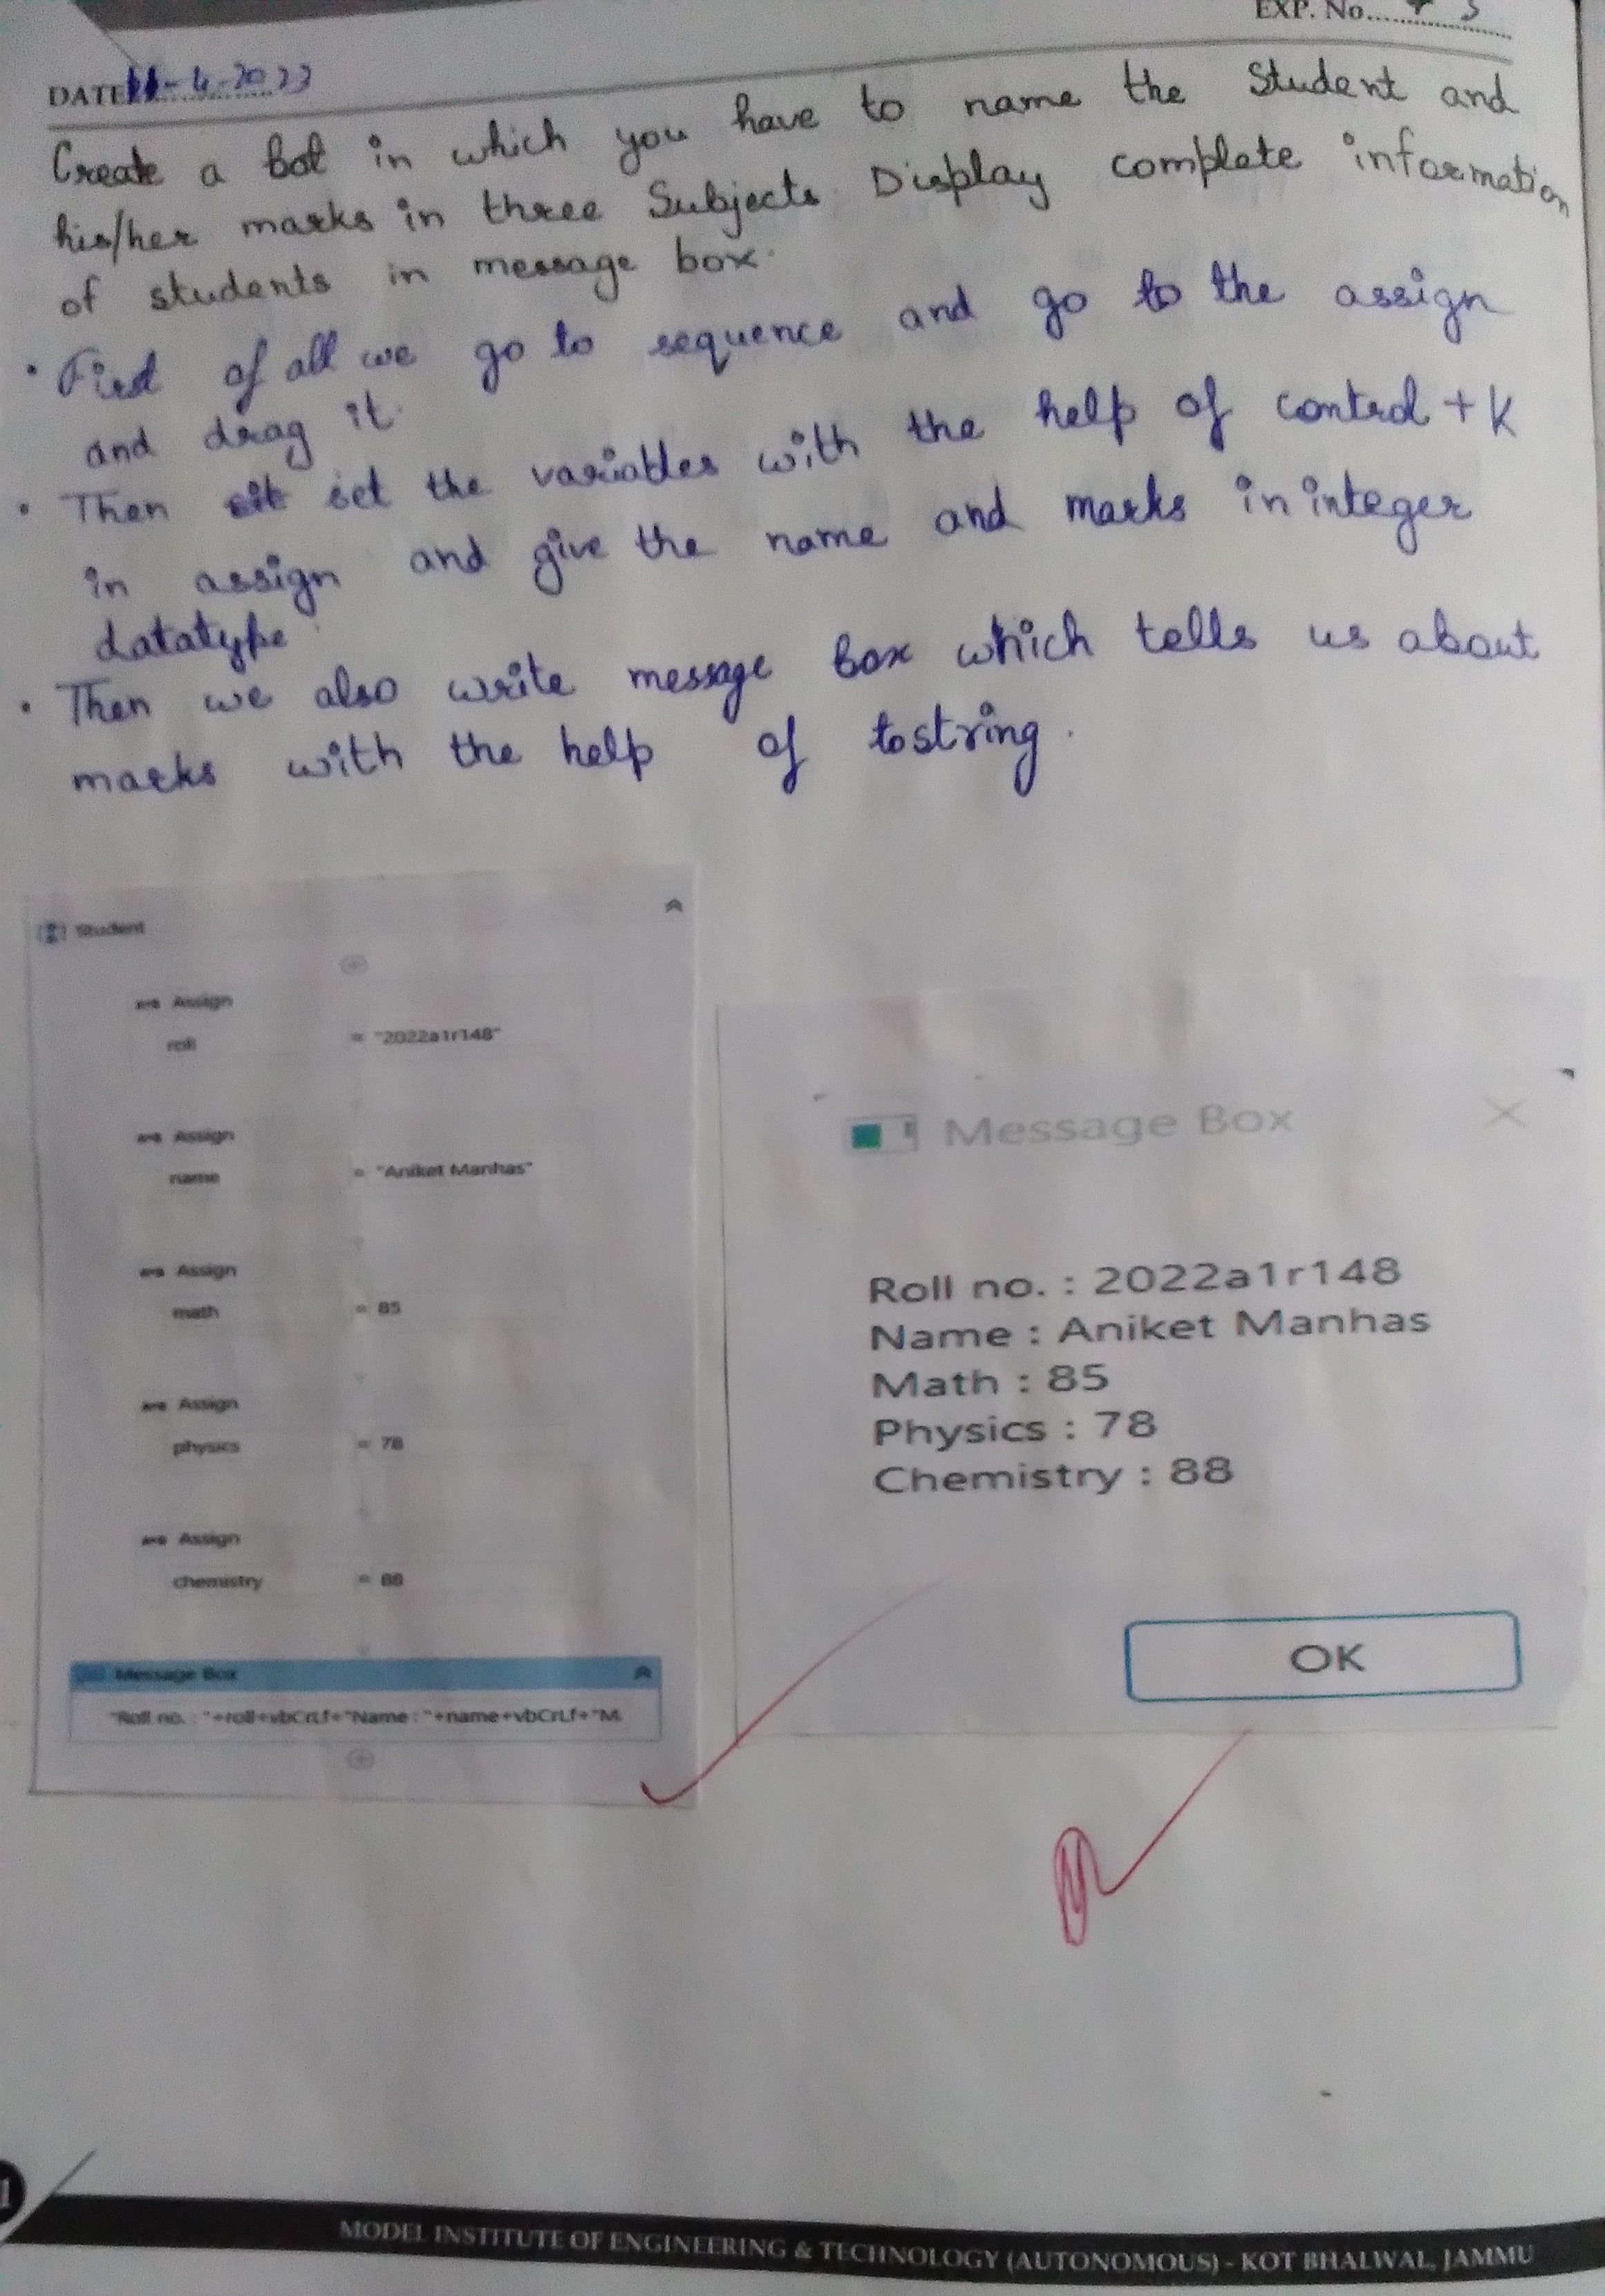 EXP. No.
DATE 11-4-2023
Create a bot in which you have to name the Student and
his/her marks in three Subjects. Display complete information
of students in message box.
• First of all we go to sequence and go to the assign
and drag it.
• Then set the variables with the help of control + K
in assign and give the name and marks in integer
datatype.
• Then we also write message box which tells us about
marks with the help of tostring.
Student
Assign
roll = "2022a1r148"
Assign
name = "Aniket Manhas"
Assign
math = 85
Assign
physics = 78
Assign
chemistry = 88
Message Box
"Roll no. : "+roll+vbCrLf+"Name : "+name+vbCrLf+"M
Message Box
Roll no. : 2022a1r148
Name : Aniket Manhas
Math : 85
Physics : 78
Chemistry : 88
OK
MODEL INSTITUTE OF ENGINEERING & TECHNOLOGY (AUTONOMOUS) - KOT BHALWAL, JAMMU